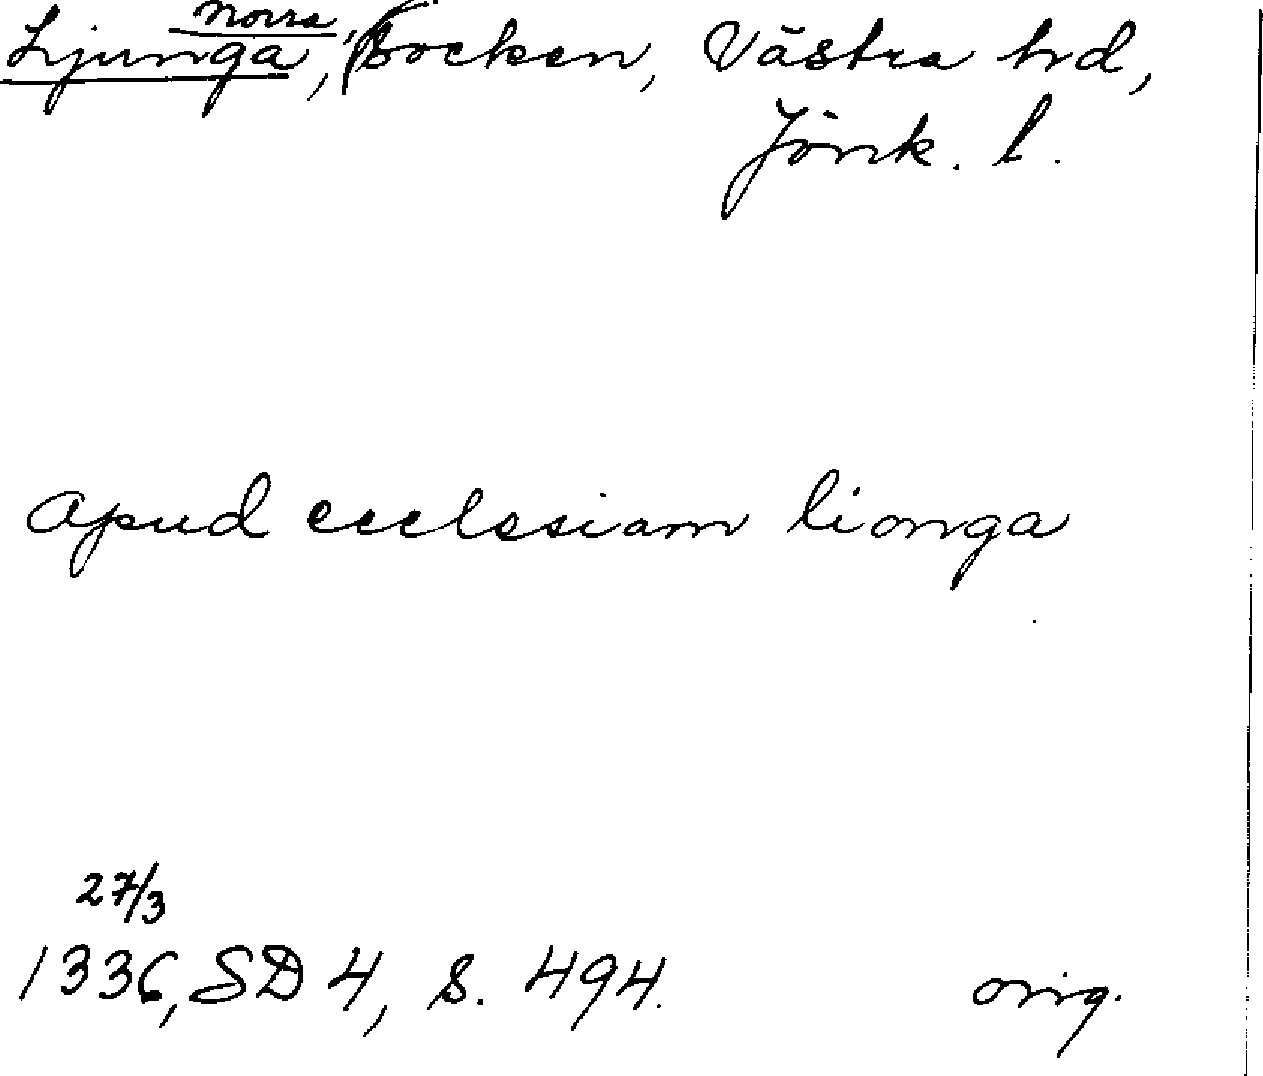 Norra
Ljunga, socken, Västra hd,
Jönk. l.
apud ecclesiam lionga
27/3
1336, SD 4, s. 494.
orig.